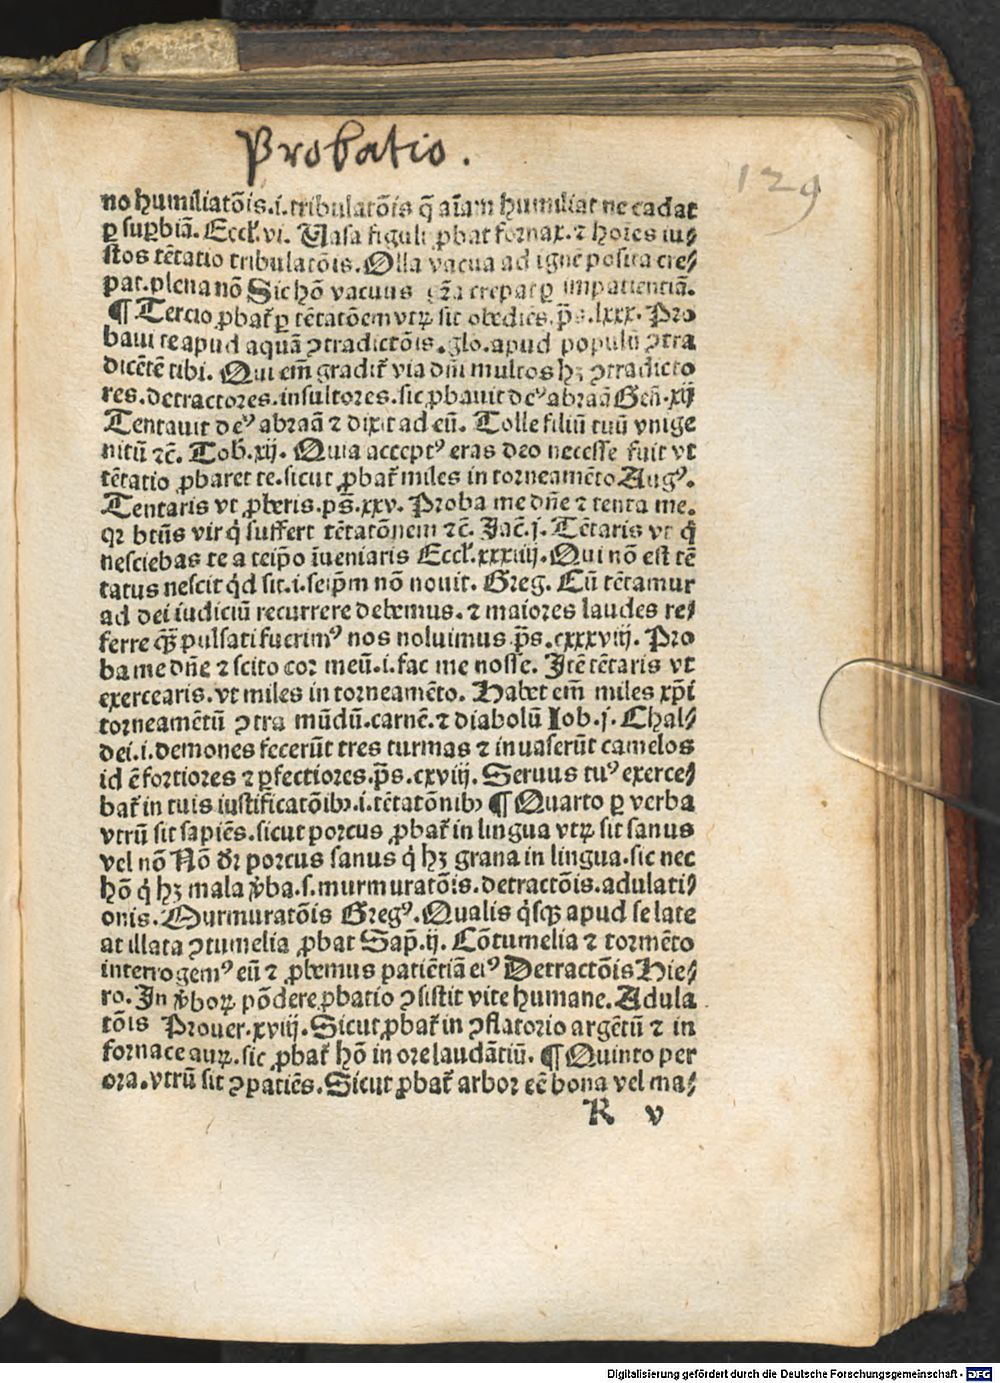 Probatio.
129
no humiliatōis.i.tribulatōis q̄ aīam humiliat ne cadat
ꝑ suꝑbiā. Eccl̓.vi. Uasa figuli ꝓbat fornax.⁊ hoīes iu⸗
stos tētatio tribulatōis. Olla vacua ad ignē posita cre⸗
pat.plena nō Sic hō vacuus gr̄a crepat ꝑ impatientiā.
¶ Tercio ꝓbat᷑ ꝑ tētatōem vtꝝ sit obediēs. p̄s.lxxx. Pro
baui te apud aquā ꝯtradictōis.glo.apud populū ꝯtra
dicētē tibi. Qui em̄ gradit᷑ via dn̄i multos hꝫ ꝯtradicto
res.detractores.insultores.sic ꝓbauit deꝰ abraā Gen̄.xij
Tentauit deꝰ abraā ⁊ dixit ad eū. Tolle filiū tuū vnige
nitū ⁊c̄. Tob̄.xij. Quia acceptꝰ eras deo necesse fuit vt
tētatio ꝓbaret te.sicut ꝓbat᷑ miles in torneamēto Augꝰ.
Tentaris vt ꝓberis.ps̄.xxv. Proba me dn̄e ⁊ tenta me.
qꝛ btūs vir q̇ suffert tētatōnem ⁊c̄. Jac̄.j. Tētaris vt q̇
nesciebas te a teip̄o īueniaris Eccl̓.xxxiiij. Qui nō est tē
tatus nescit q̇d sit.i.seip̄m nō nouit. Greg. Cū tētamur
ad dei iudiciū recurrere debemus.⁊ maiores laudes re⸗
ferre qꝫ̄ pulsati fuerimꝰ nos noluimus p̄s.cxxxviij. Pro
ba me dn̄e ⁊ scito cor meū.i.fac me nosse. Jtē tētaris vt
exercearis.vt miles in torneamēto. Habet em̄ miles xp̄i
torneamētū ꝯtra mūdū.carnē.⁊ diabolū Iob.j. Chal⸗
dei.i.demones fecerūt tres turmas ⁊ inuaserūt camelos
id ē fortiores ⁊ ꝑfectiores.p̄s.cxviij. Seruus tuꝰ exerce⸗
bat᷑ in tuis iustificatōibꝫ.i.tētatōnibꝫ ¶ Quarto ꝑ verba
vtrū sit sapiēs.sicut porcus ꝓbat᷑ in lingua vtꝝ sit sanus
vel nō Nō dr̄ porcus sanus q̇ hꝫ grana in lingua.sic nec
hō q̇ hꝫ mala v̄ba.s.murmuratōis.detractōis.adulati⸗
onis. Murmuratōis Gregꝰ. Qualis q̇sqꝫ apud se late
at illata ꝯtumelia ꝓbat Sap̄.ij. Cōtumelia ⁊ tormēto
interrogemꝰ eū ⁊ ꝓbemus patiētiā eiꝰ Detractōis Hie⸗
ro. Jn v̄boꝝ pōdere ꝓbatio ꝯsistit vite humane. Adula
tōis Prouer.xviij. Sicut ꝓbat᷑ in ꝯflatorio argētū ⁊ in
fornace auꝝ.sic ꝓbat᷑ hō in ore laudātiū. ¶ Quinto per
ora.vtrū sit ꝯpatiēs. Sicut ꝓbat᷑ arbor eē bona vel ma⸗
R v
Digitalisierung gefördert durch die Deutsche Forschungsgemeinschaft - DFG